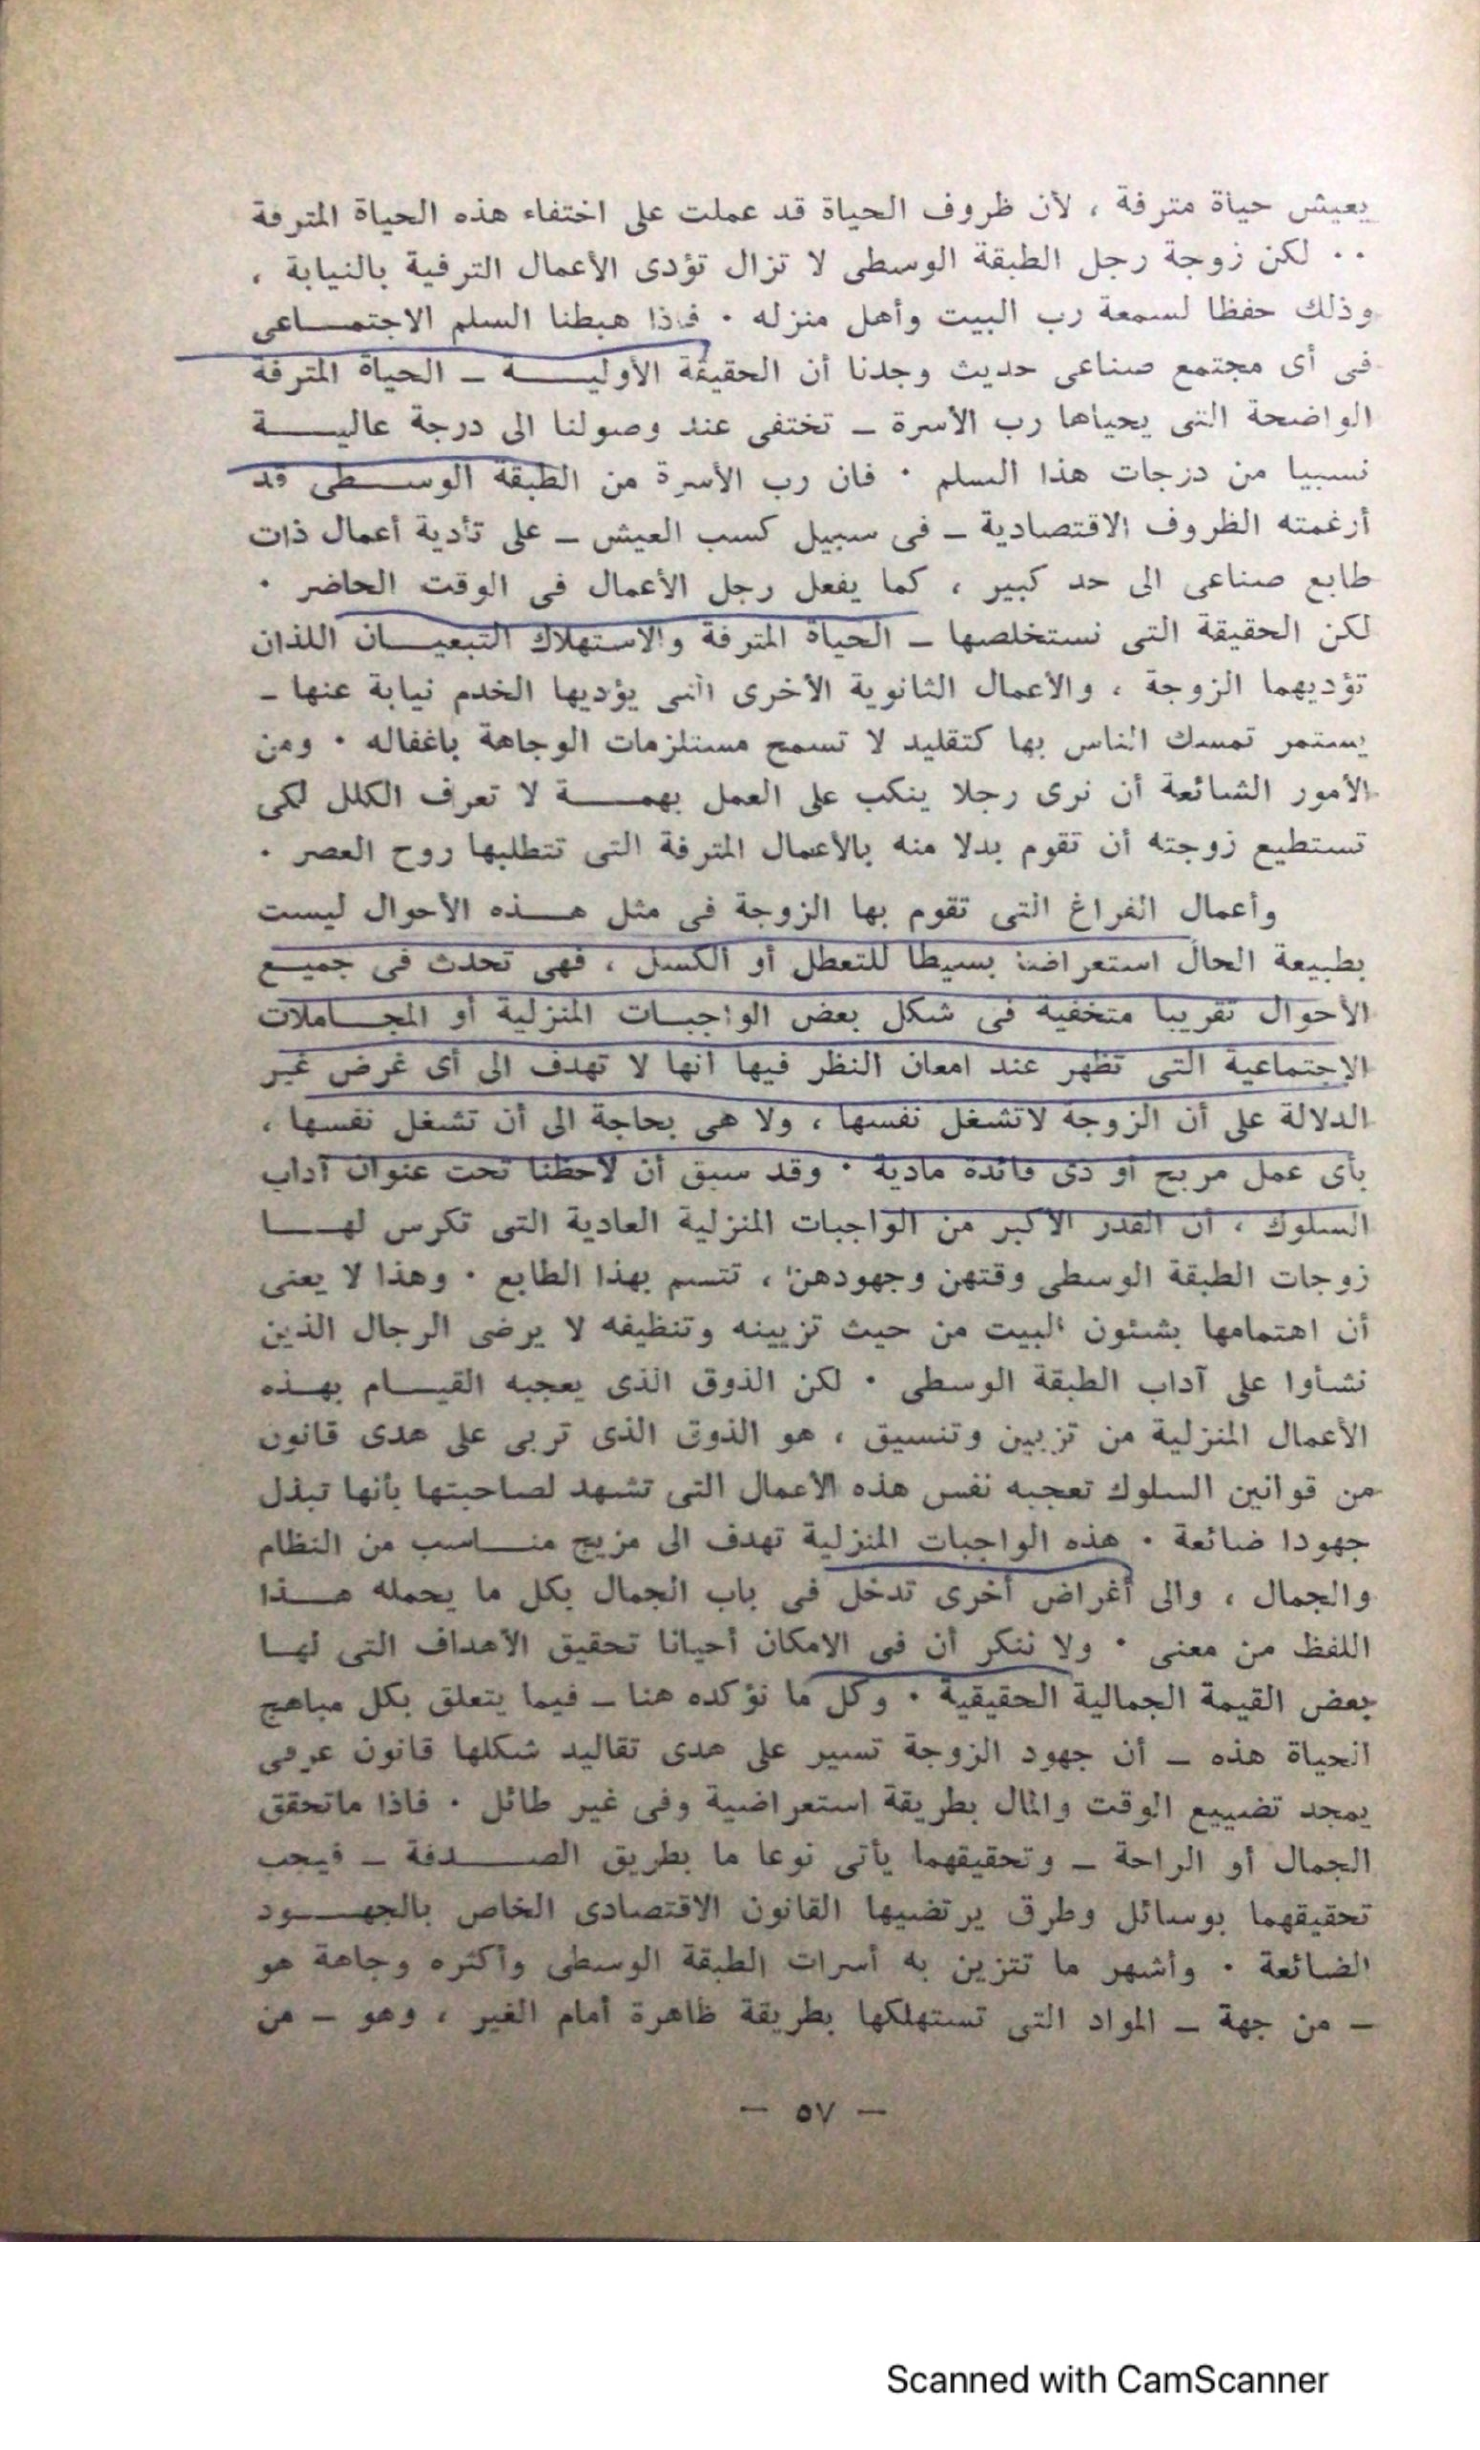 يعيش حياة مترفة ، لأن ظروف الحياة قد عملت على اختفاء هذه الحياة المترفة
٠٠ لكن زوجة رجل الطبقة الوسطى لا تزال تؤدى الأعمال الترفية بالنيابة ،
وذلك حفظا لسمعة رب البيت وأهل منزله ٠ فاذا هبطنا السلم الاجتمـــاعى
فى أى مجتمع صناعى حديث وجدنا أن الحقيقة الأوليـــــة ــ الحياة المترفة
الواضحة التى يحياها رب الأسرة ــ تختفى عند وصولنا الى درجة عاليـــــة
نسبيا من درجات هذا السلم ٠ فان رب الأسرة من الطبقة الوســـطى قد
أرغمته الظروف الاقتصادية ــ فى سبيل كسب العيش ــ على تأدية أعمال ذات
طابع صناعى الى حد كبير ، كما يفعل رجل الأعمال فى الوقت الحاضر ٠
لكن الحقيقة التى نستخلصها ــ الحياة المترفة والاستهلاك التبعيـــان اللذان
تؤديهما الزوجة ، والأعمال الثانوية الأخرى التى يؤديها الخدم نيابة عنها ــ
يستمر تمسك الناس بها كتقليد لا تسمح مستلزمات الوجاهة باغفاله ٠ ومن
الأمور الشائعة أن نرى رجلا ينكب على العمل بهمـــــة لا تعرف الكلل لكى
تستطيع زوجته أن تقوم بدلا منه بالأعمال المترفة التى تتطلبها روح العصر ٠
وأعمال الفراغ التى تقوم بها الزوجة فى مثل هـــذه الأحوال ليست
بطبيعة الحال استعراضا بسيطا للتعطل أو الكسل ، فهى تحدث فى جميـع
الأحوال تقريبا متخفية فى شكل بعض الواجبـات المنزلية أو المجـــاملات
الاجتماعية التى تظهر عند امعان النظر فيها أنها لا تهدف الى أى غرض غير
الدلالة على أن الزوجة لاتشغل نفسها ، ولا هى بحاجة الى أن تشغل نفسها ،
بأى عمل مربح أو ذى فائدة مادية ٠ وقد سبق أن لاحظنا تحت عنوان آداب
السلوك ، أن القدر الأكبر من الواجبات المنزلية العادية التى تكرس لهـــا
زوجات الطبقة الوسطى وقتهن وجهودهن ، تتسم بهذا الطابع ٠ وهذا لا يعنى
أن اهتمامها بشئون البيت من حيث تزيينه وتنظيفه لا يرضى الرجال الذين
نشأوا على آداب الطبقة الوسطى ٠ لكن الذوق الذى يعجبه القيـــام بهـذه
الأعمال المنزلية من تزيين وتنسيق ، هو الذوق الذى تربى على هدى قانون
من قوانين السلوك تعجبه نفس هذه الأعمال التى تشهد لصاحبتها بأنها تبذل
جهودا ضائعة ٠ هذه الواجبات المنزلية تهدف الى مزيج منـــاسب من النظام
والجمال ، والى أغراض أخرى تدخل فى باب الجمال بكل ما يحمله هـــذا
اللفظ من معنى ٠ ولا ننكر أن فى الامكان أحيانا تحقيق الأهداف التى لهـا
بعض القيمة الجمالية الحقيقية ٠ وكل ما نؤكده هنا ــ فيما يتعلق بكل مباهج
الحياة هذه ــ أن جهود الزوجة تسير على هدى تقاليد شكلها قانون عرفى
يمجد تضييع الوقت والمال بطريقة استعراضية وفى غير طائل ٠ فاذا ماتحقق
الجمال أو الراحة ــ وتحقيقهما يأتى نوعا ما بطريق الصـــــدفة ــ فيجب
تحقيقهما بوسائل وطرق يرتضيها القانون الاقتصادى الخاص بالجهـــود
الضائعة ٠ وأشهر ما تتزين به أسرات الطبقة الوسطى وأكثره وجاهة هو
ــ من جهة ــ المواد التى تستهلكها بطريقة ظاهرة أمام الغير ، وهو ــ من
— ٥٧ —
Scanned with CamScanner